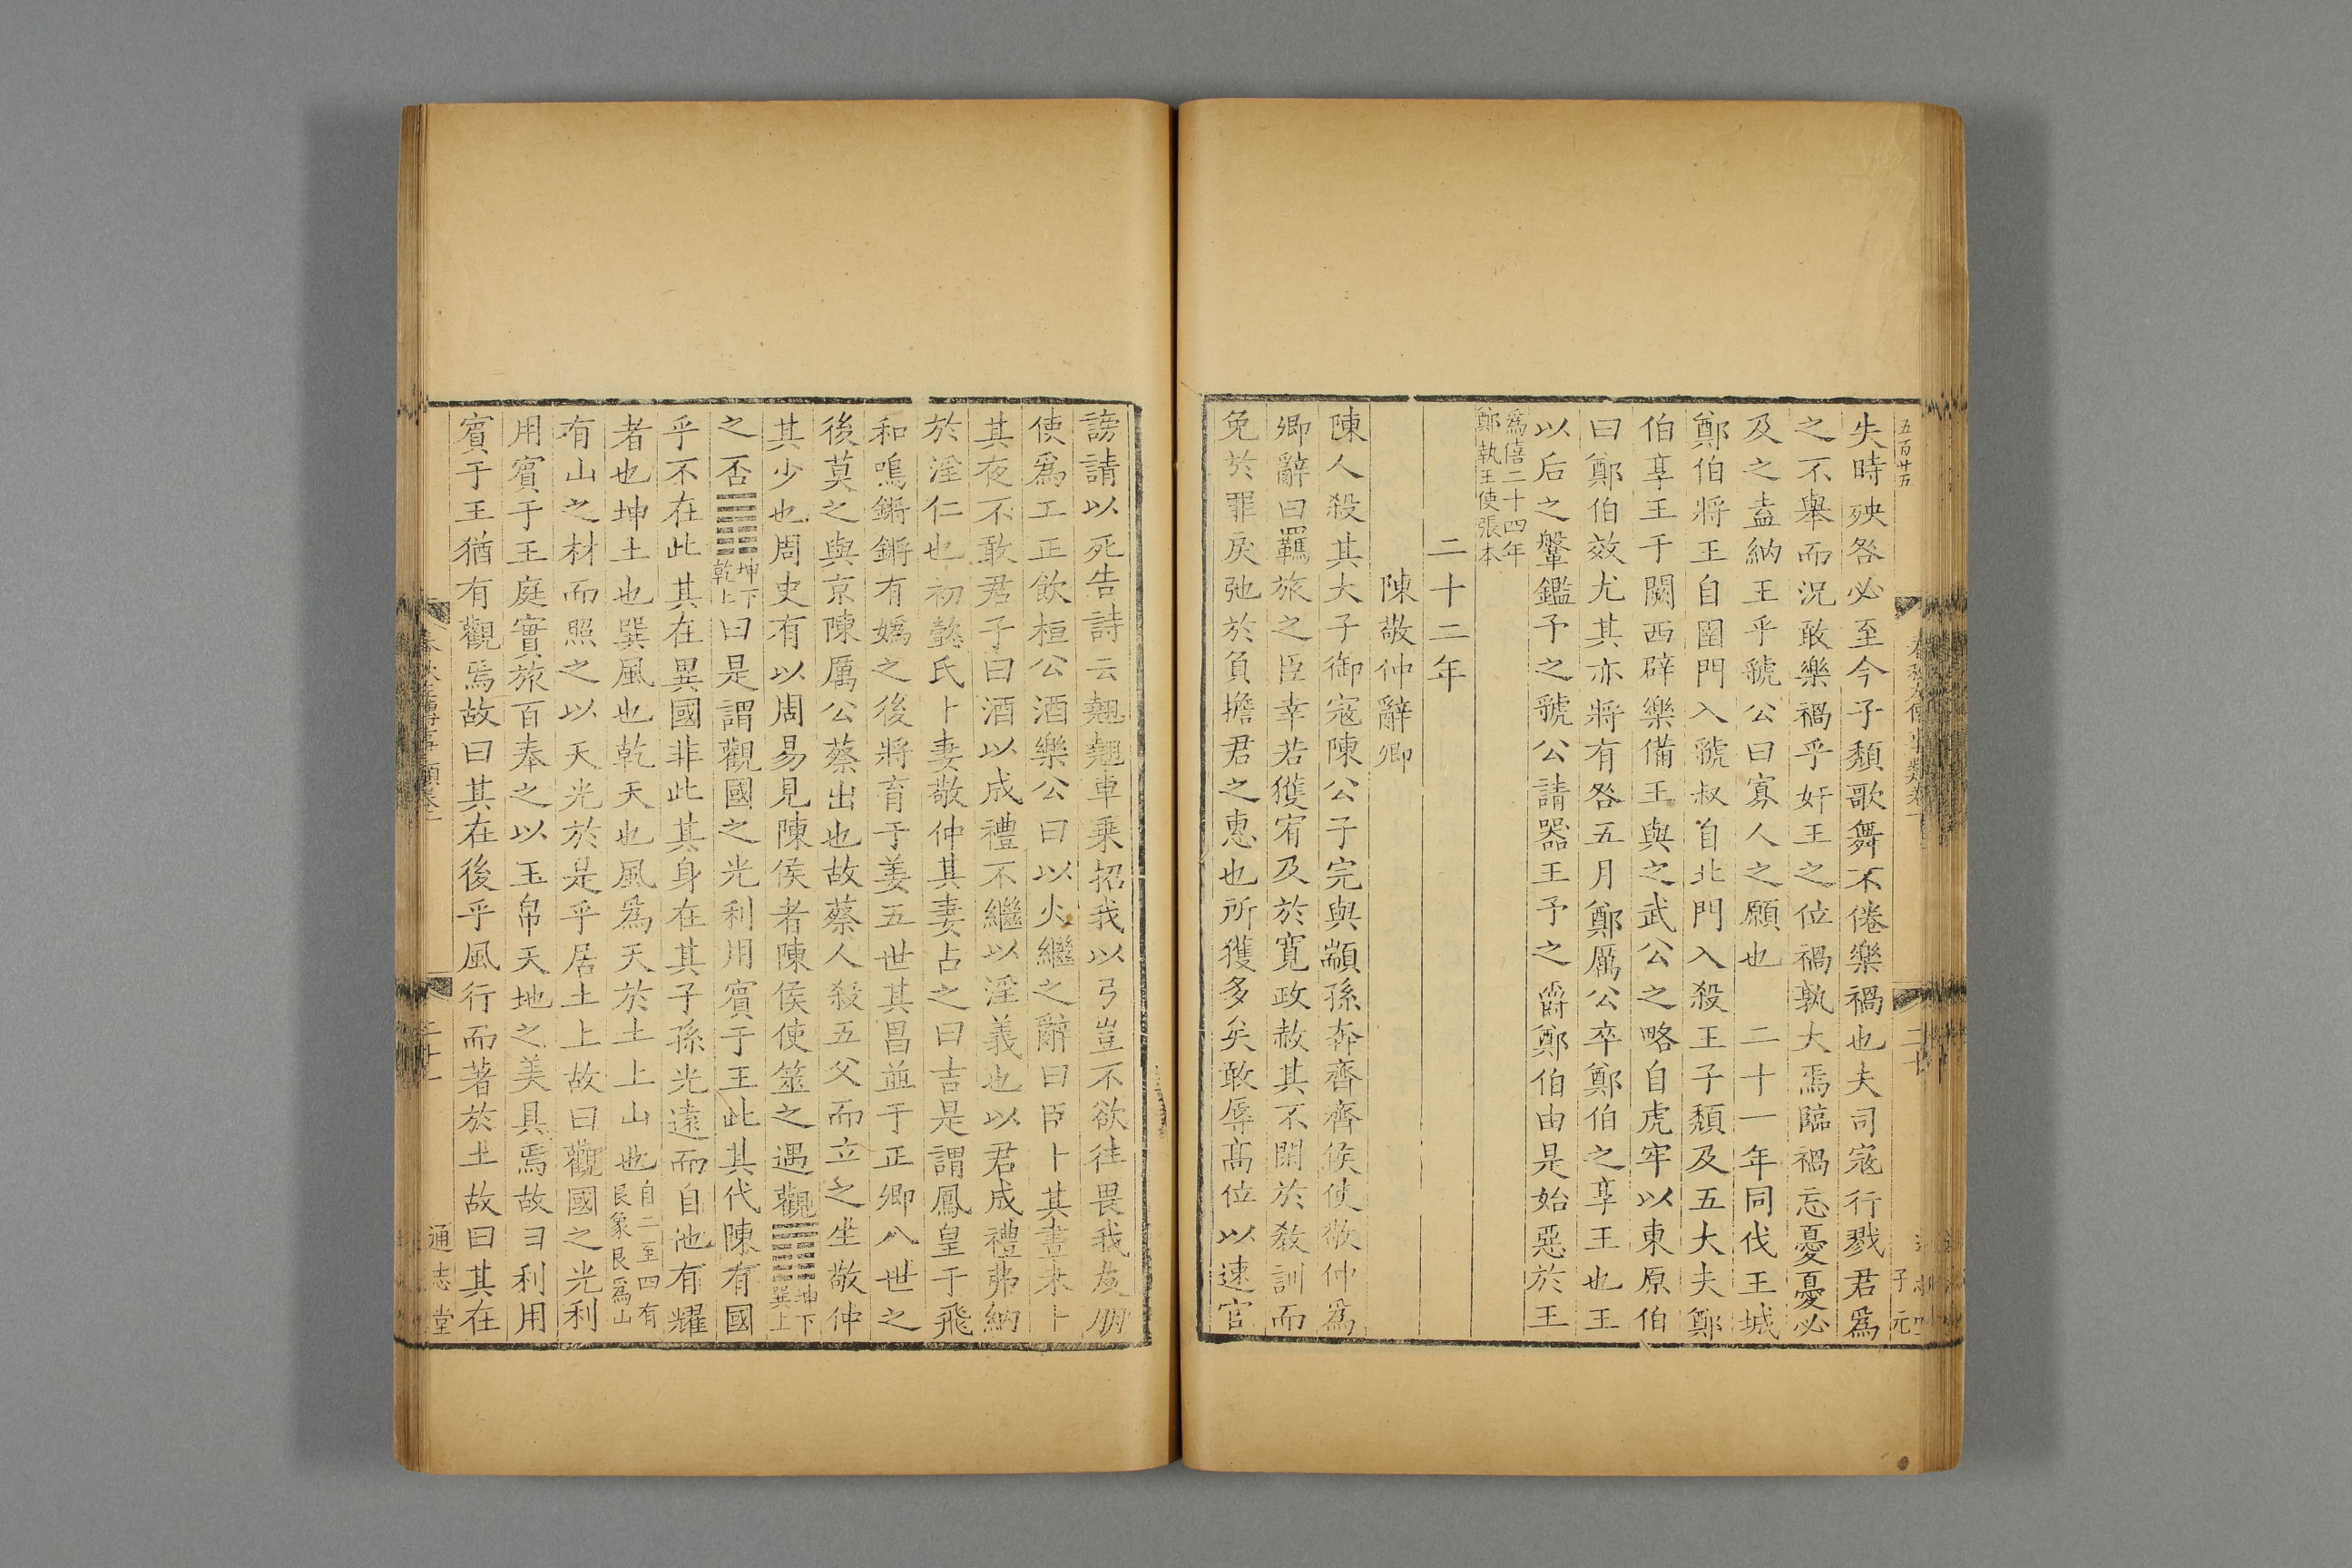 五百廿五
失時殃咎必至今子頹歌舞不倦樂禍也夫司寇行戮君爲
之不舉而況敢樂禍乎奸王之位禍孰大焉臨禍忘憂憂必
及之盍納王乎虢公曰寡人之願也 二十一年同伐王城
鄭伯將王自圉門入虢叔自北門入殺王子頹及五大夫鄭
伯享王于闕西辟樂備王與之武公之略自虎牢以東原伯
曰鄭伯效尤其亦將有咎五月鄭厲公卒鄭伯之享王也王
以后之鞶鑑予之虢公請器王予之爵鄭伯由是始惡於王
爲僖二十四年
鄭執王使張本
二十二年
陳敬仲辭卿
陳人殺其大子御寇陳公子完與顓孫奔齊齊侯使敬仲爲
卿辭曰羈旅之臣幸若獲宥及於寬政赦其不閑於教訓而
免於罪戾弛於負擔君之惠也所獲多矣敢辱高位以速官
謗請以死告詩云翹翹車乗招我以弓豈不欲往畏我友朋
使爲工正飲桓公酒樂公曰以火繼之辭曰臣卜其晝未卜
其夜不敢君子曰酒以成禮不繼以淫義也以君成禮弗納
於淫仁也初懿氏卜妻敬仲其妻占之曰吉是謂鳳皇于飛
和鳴鏘鏘有嬀之後將育于姜五世其昌並于正卿八世之
後莫之與京陳厲公蔡出也故蔡人殺五父而立之生敬仲
其少也周史有以周易見陳侯者陳侯使筮之遇觀䷓坤下巽上
之否䷋坤下乾上曰是謂觀國之光利用賓于王此其代陳有國
乎不在此其在異國非此其身在其子孫光遠而自他有耀
者也坤土也巽風也乾天也風爲天於土上山也自二至四有艮象艮爲山
有山之材而照之以天光於是乎居土上故曰觀國之光利
用賓于王庭實旅百奉之以玉帛天地之美具焉故曰利用
賓于王猶有觀焉故曰其在後乎風行而著於土故曰其在
通志堂